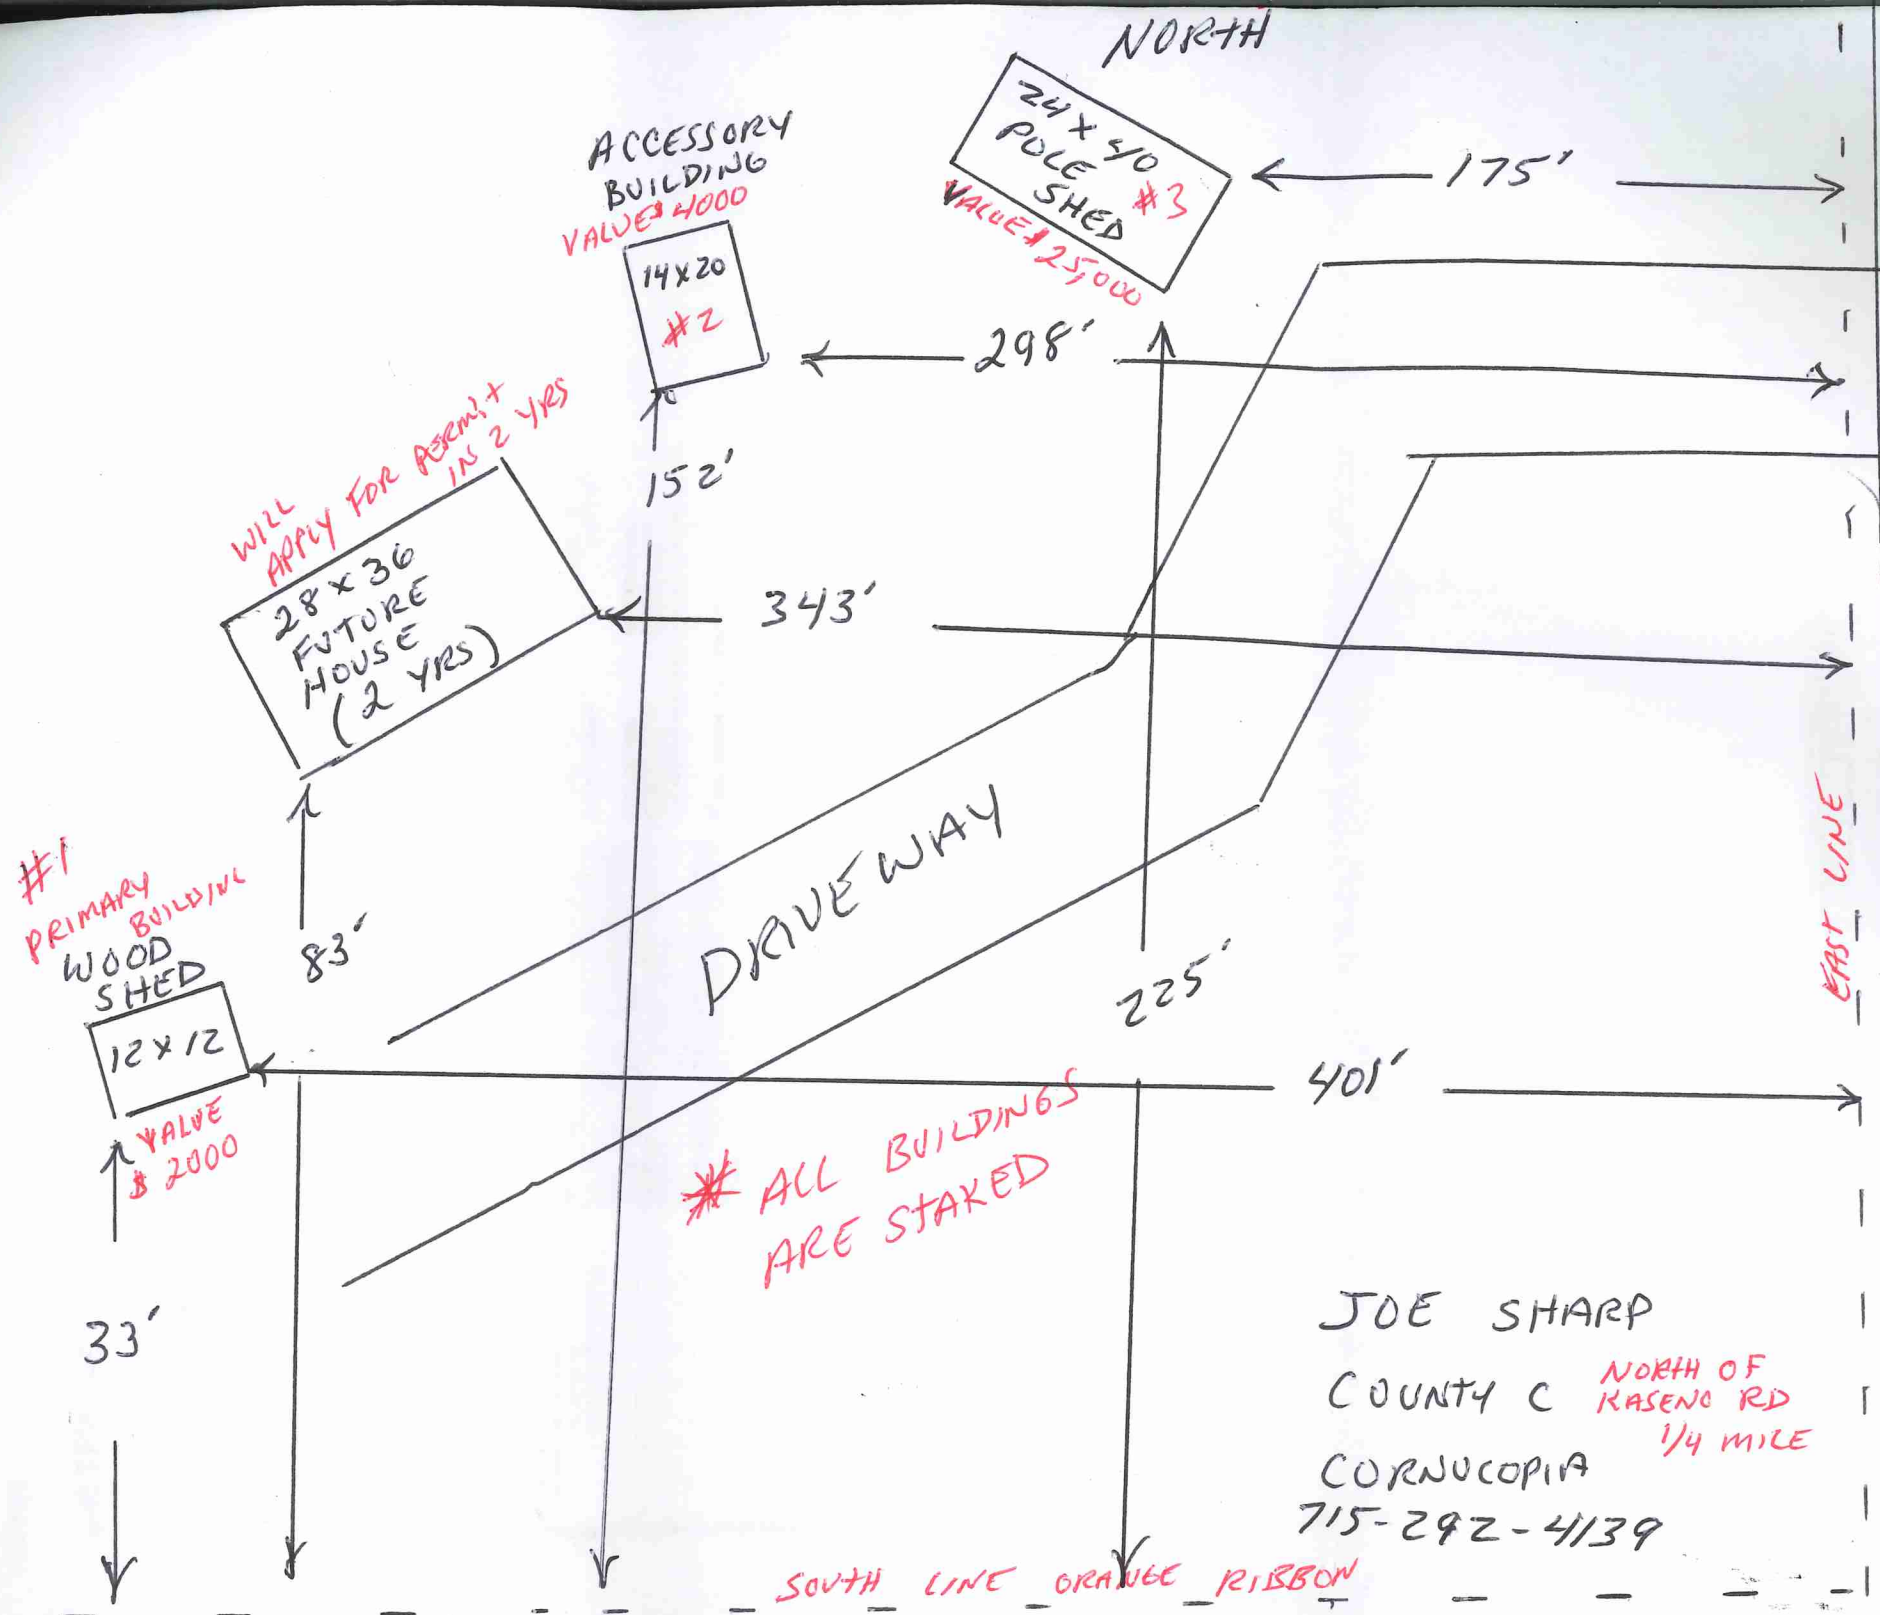 NORTH
24 x 40
POLE
SHED
#3
VALUE $ 25,000
175'
ACCESSORY
BUILDING
VALUE $ 4000
14 x 20
#2
298'
152'
WILL
APPLY FOR PERMIT
IN 2 YRS
28 x 36
FUTURE
HOUSE
(2 YRS)
343'
83'
DRIVEWAY
225'
EAST LINE
#1
PRIMARY
BUILDING
WOOD
SHED
12 x 12
VALUE
$ 2000
401'
* ALL BUILDINGS
ARE STAKED
33'
JOE SHARP
COUNTY C
NORTH OF
KASENO RD
1/4 MILE
CORNUCOPIA
715-292-4139
SOUTH LINE ORANGE RIBBON